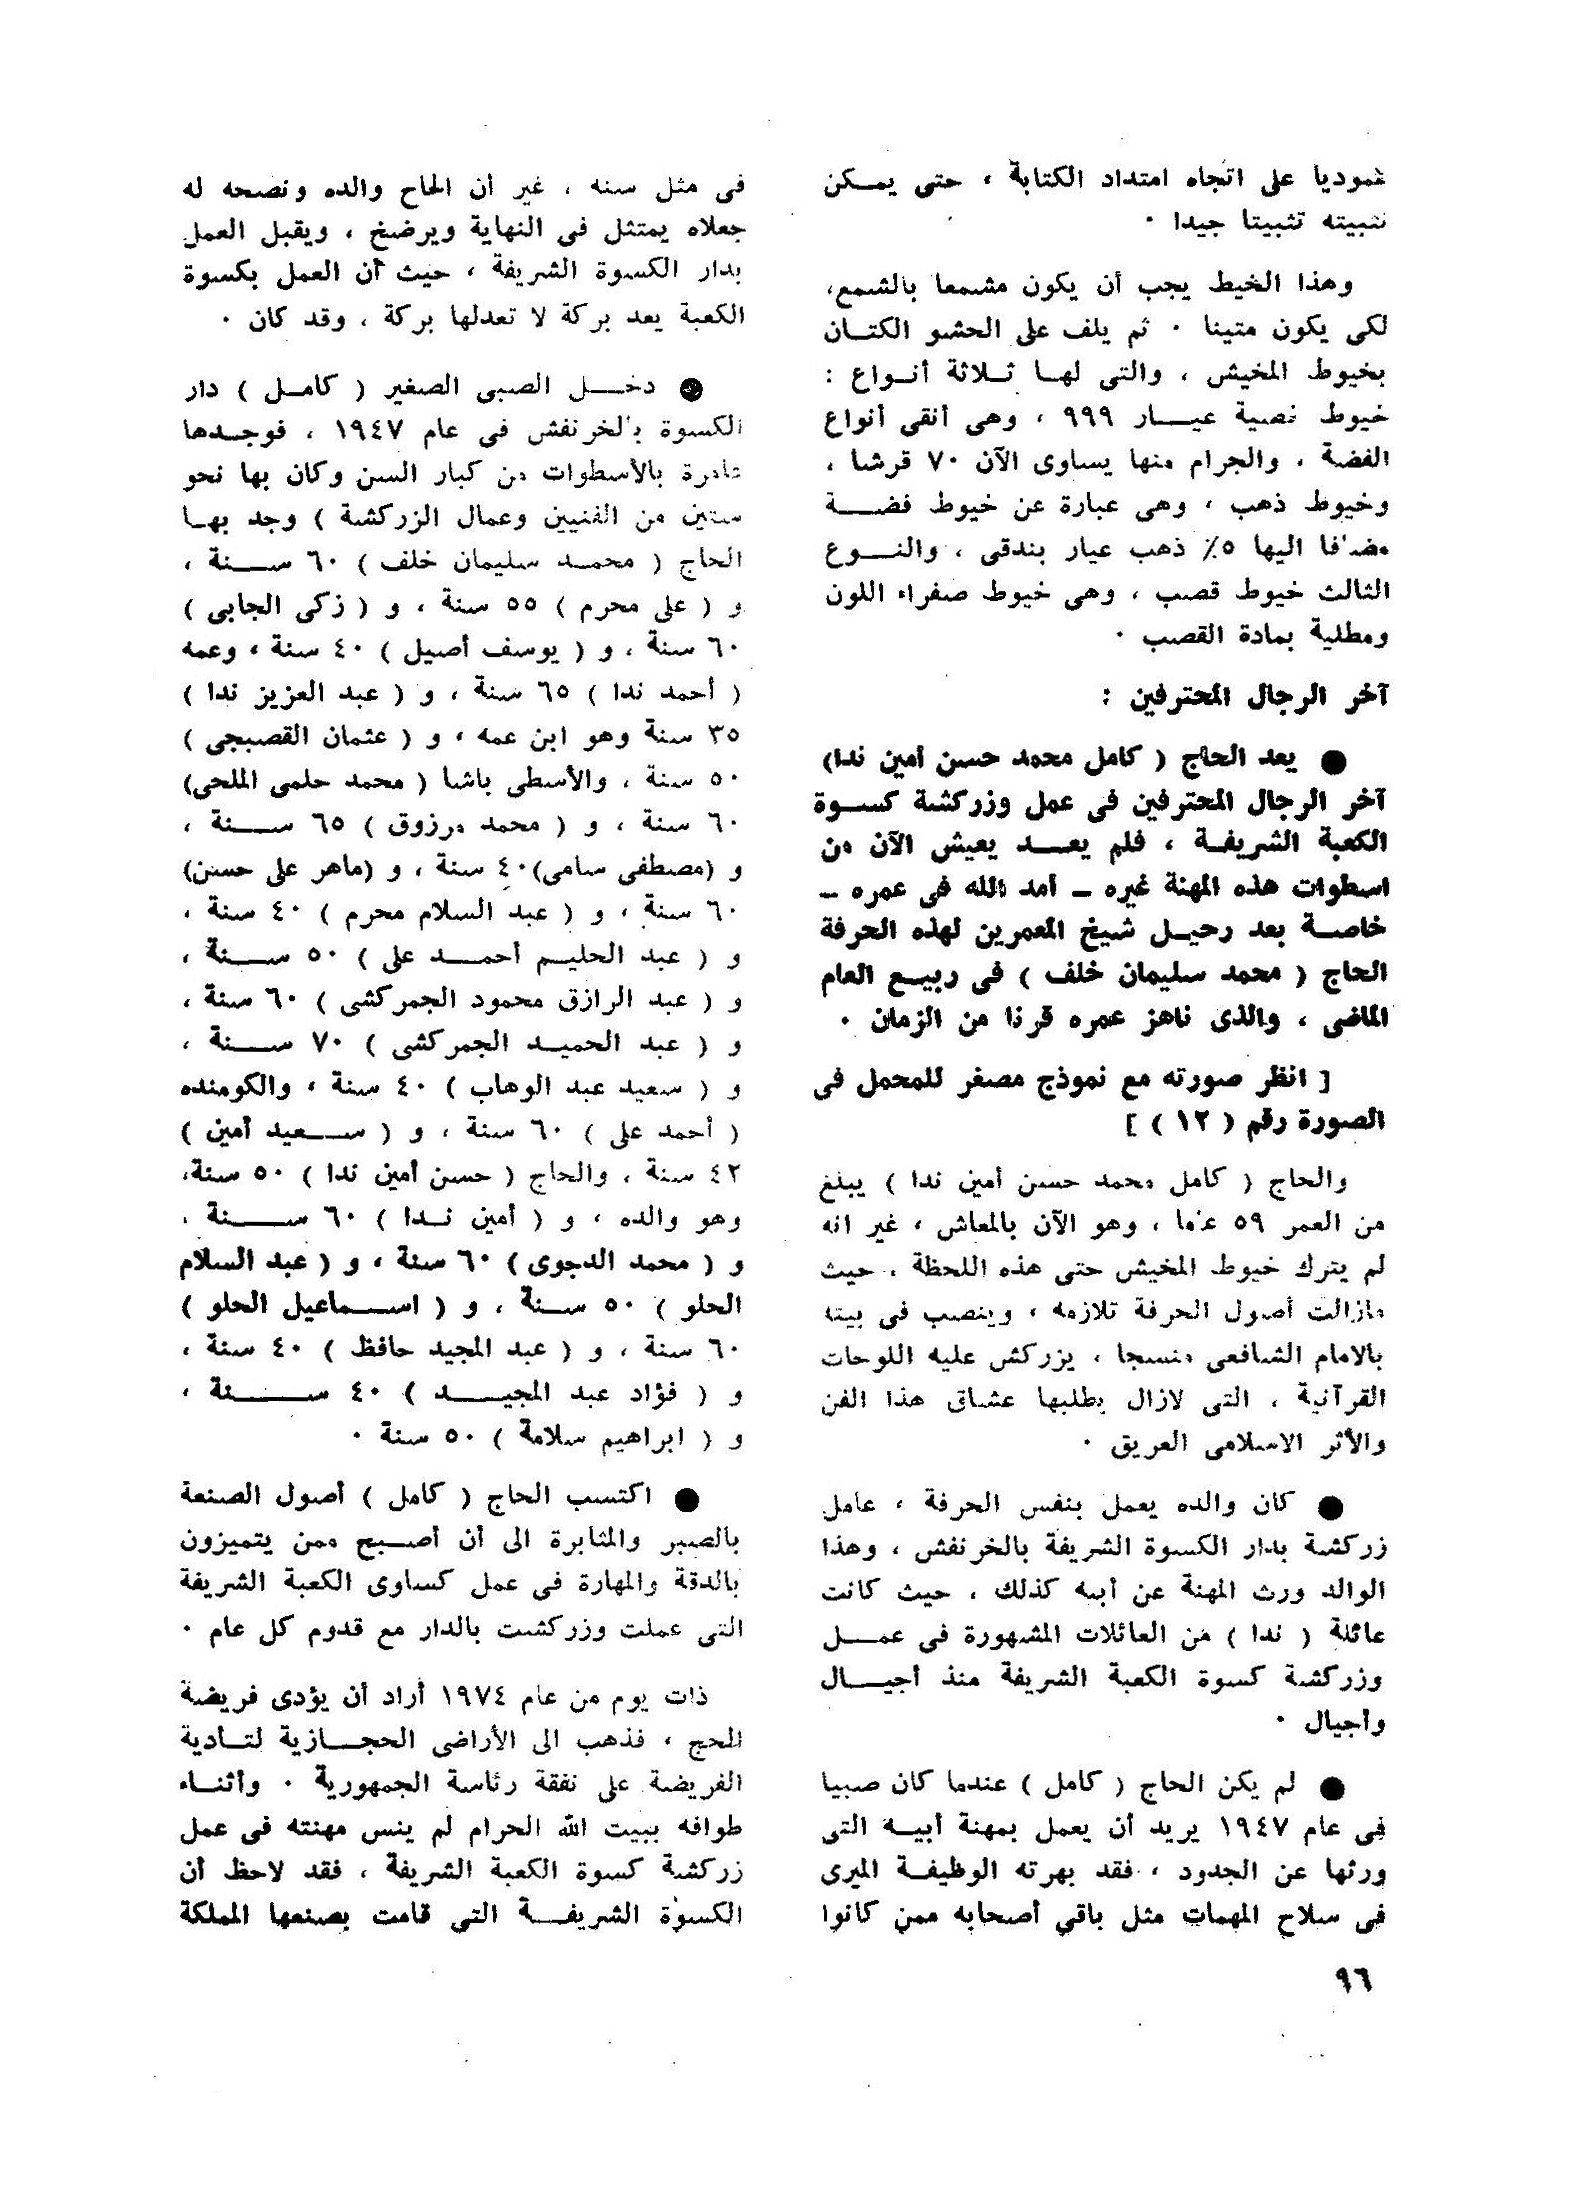 عموديا على اتجاه امتداد الكتابة ، حتى يمكن
تثبيته تثبيتا جيدا ٠
وهذا الخيط يجب أن يكون مشمعا بالشمع،
لكى يكون متينا ٠ ثم يلف على الحشو الكتان
بخيوط المخيش ، والتى لها ثلاثة أنواع :
خيوط فضية عيار ٩٩٩ ، وهى أنقى أنواع
الفضة ، والجرام منها يساوى الآن ٧٠ قرشا ،
وخيوط ذهب ، وهى عبارة عن خيوط فضة
مضافا اليها ٥٪ ذهب عيار بندقى ، والنوع
الثالث خيوط قصب ، وهى خيوط صفراء اللون
ومطلية بمادة القصب ٠
آخر الرجال المحترفين :
● يعد الحاج ( كامل محمد حسن أمين ندا)
آخر الرجال المحترفين فى عمل وزركشة كسوة
الكعبة الشريفة ، فلم يعد يعيش الآن من
اسطوات هذه المهنة غيره – أمد الله فى عمره –
خاصة بعد رحيل شيخ المعمرين لهذه الحرفة
الحاج ( محمد سليمان خلف ) فى ربيع العام
الماضى ، والذى ناهز عمره قرنا من الزمان ٠
[ انظر صورته مع نموذج مصغر للمحمل فى
الصورة رقم ( ١٢ ) ]
والحاج ( كامل محمد حسن أمين ندا ) يبلغ
من العمر ٥٩ عاما ، وهو الآن بالمعاش ، غير انه
لم يترك خيوط المخيش حتى هذه اللحظة ، حيث
مازالت أصول الحرفة تلازمه ، وينصب فى بيته
بالامام الشافعى منسجا ، يزركش عليه اللوحات
القرآنية ، التى لازال يطلبها عشاق هذا الفن
والأثر الاسلامى العريق ٠
● كان والده يعمل بنفس الحرفة ، عامل
زركشة بدار الكسوة الشريفة بالخرنفش ، وهذا
الوالد ورث المهنة عن أبيه كذلك ، حيث كانت
عائلة ( ندا ) من العائلات المشهورة فى عمل
وزركشة كسوة الكعبة الشريفة منذ أجيال
وأجيال ٠
● لم يكن الحاج ( كامل ) عندما كان صبيا
فى عام ١٩٤٧ يريد أن يعمل بمهنة أبيه التى
ورثها عن الجدود ، فقد بهرته الوظيفة الميرى
فى سلاح المهمات مثل باقي أصحابه ممن كانوا
فى مثل سنه ، غير أن الحاج والده ونصحه له
جعلاه يمتثل فى النهاية ويرضخ ، ويقبل العمل
بدار الكسوة الشريفة ، حيث أن العمل بكسوة
الكعبة يعد بركة لا تعدلها بركة ، وقد كان ٠
● دخل الصبى الصغير ( كامل ) دار
الكسوة بالخرنفش فى عام ١٩٤٧ ، فوجدها
عامرة بالأسطوات من كبار السن وكان بها نحو
ستين من الفنيين وعمال الزركشة ) وجد بها
الحاج ( محمد سليمان خلف ) ٦٠ سنة ،
و ( على محرم ) ٥٥ سنة ، و ( زكى الجابى )
٦٠ سنة ، و ( يوسف أصيل ) ٤٠ سنة ، وعمه
( أحمد ندا ) ٦٥ سنة ، و ( عبد العزيز ندا )
٣٥ سنة وهو ابن عمه ، و ( عثمان القصبجى )
٥٠ سنة ، والأسطى باشا ( محمد حلمى الملحى)
٦٠ سنة ، و ( محمد مرزوق ) ٦٥ سنة ،
و (مصطفى سامى) ٤٠ سنة ، و (ماهر على حسن)
٦٠ سنة ، و ( عبد السلام محرم ) ٤٠ سنة ،
و ( عبد الحليم أحمد على ) ٥٠ سنة ،
و ( عبد الرازق محمود الجمركشى ) ٦٠ سنة ،
و ( عبد الحميد الجمركشى ) ٧٠ سنة ،
و ( سعيد عبد الوهاب ) ٤٠ سنة ، والكومنده
( أحمد على ) ٦٠ سنة ، و ( سعيد أمين )
٤٢ سنة ، والحاج ( حسن أمين ندا ) ٥٠ سنة،
وهو والده ، و ( أمين ندا ) ٦٠ سنة ،
و ( محمد الدجوى ) ٦٠ سنة ، و ( عبد السلام
الحلو ) ٥٠ سنة ، و ( اسماعيل الحلو )
٦٠ سنة ، و ( عبد المجيد حافظ ) ٤٠ سنة ،
و ( فؤاد عبد المجيد ) ٤٠ سنة ،
و ( ابراهيم سلامة ) ٥٠ سنة ٠
● اكتسب الحاج ( كامل ) أصول الصنعة
بالصبر والمثابرة الى أن أصبح ممن يتميزون
بالدقة والمهارة فى عمل كساوى الكعبة الشريفة
التى عملت وزركشت بالدار مع قدوم كل عام ٠
ذات يوم من عام ١٩٧٤ أراد أن يؤدى فريضة
الحج ، فذهب الى الأراضى الحجازية لتأدية
الفريضة على نفقة رئاسة الجمهورية ٠ وأثناء
طوافه ببيت الله الحرام لم ينس مهنته فى عمل
زركشة كسوة الكعبة الشريفة ، فقد لاحظ أن
الكسوة الشريفة التى قامت بصنعها المملكة
٩٦